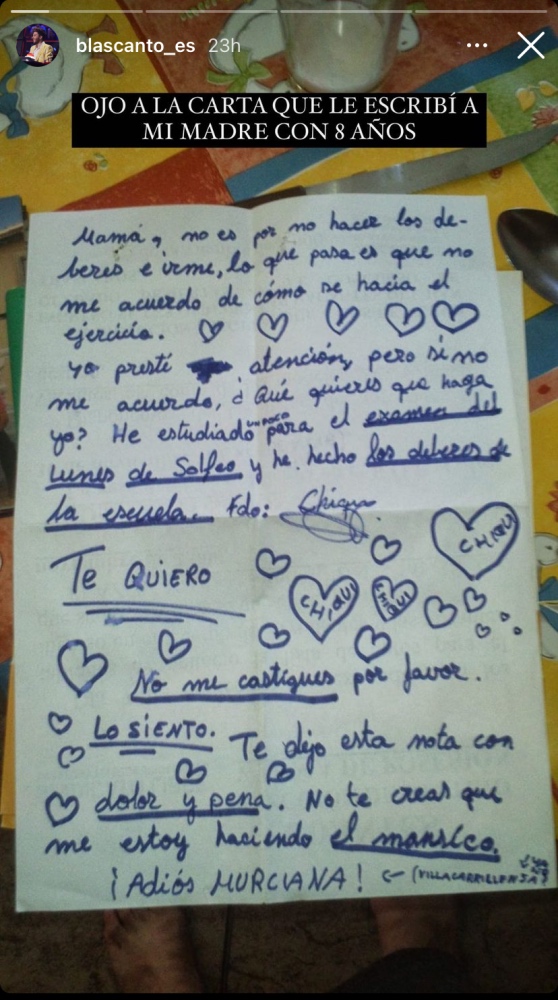 blascanto_es 23h
OJO A LA CARTA QUE LE ESCRIBÍ A
MI MADRE CON 8 AÑOS
Mamá, no es por no hacer los de-
beres e irme, lo que pasa es que no
me acuerdo de cómo se hacía el
ejercicio.
Yo presté atención, pero si no
me acuerdo, ¿Qué quieres que haga
yo? He estudiado un poco para el examen del
Lunes de Solfeo y he hecho los deberes de
la escuela. Fdo: Chiqui
TE QUIERO
CHIQUI
CHIQUI
CHIQUI
No me castigues por favor.
LO SIENTO. Te dejo esta nota con
dolor y pena. No te creas que
me estoy haciendo el mansico.
¡Adiós MURCIANA! (VILLACARRILLENSA)